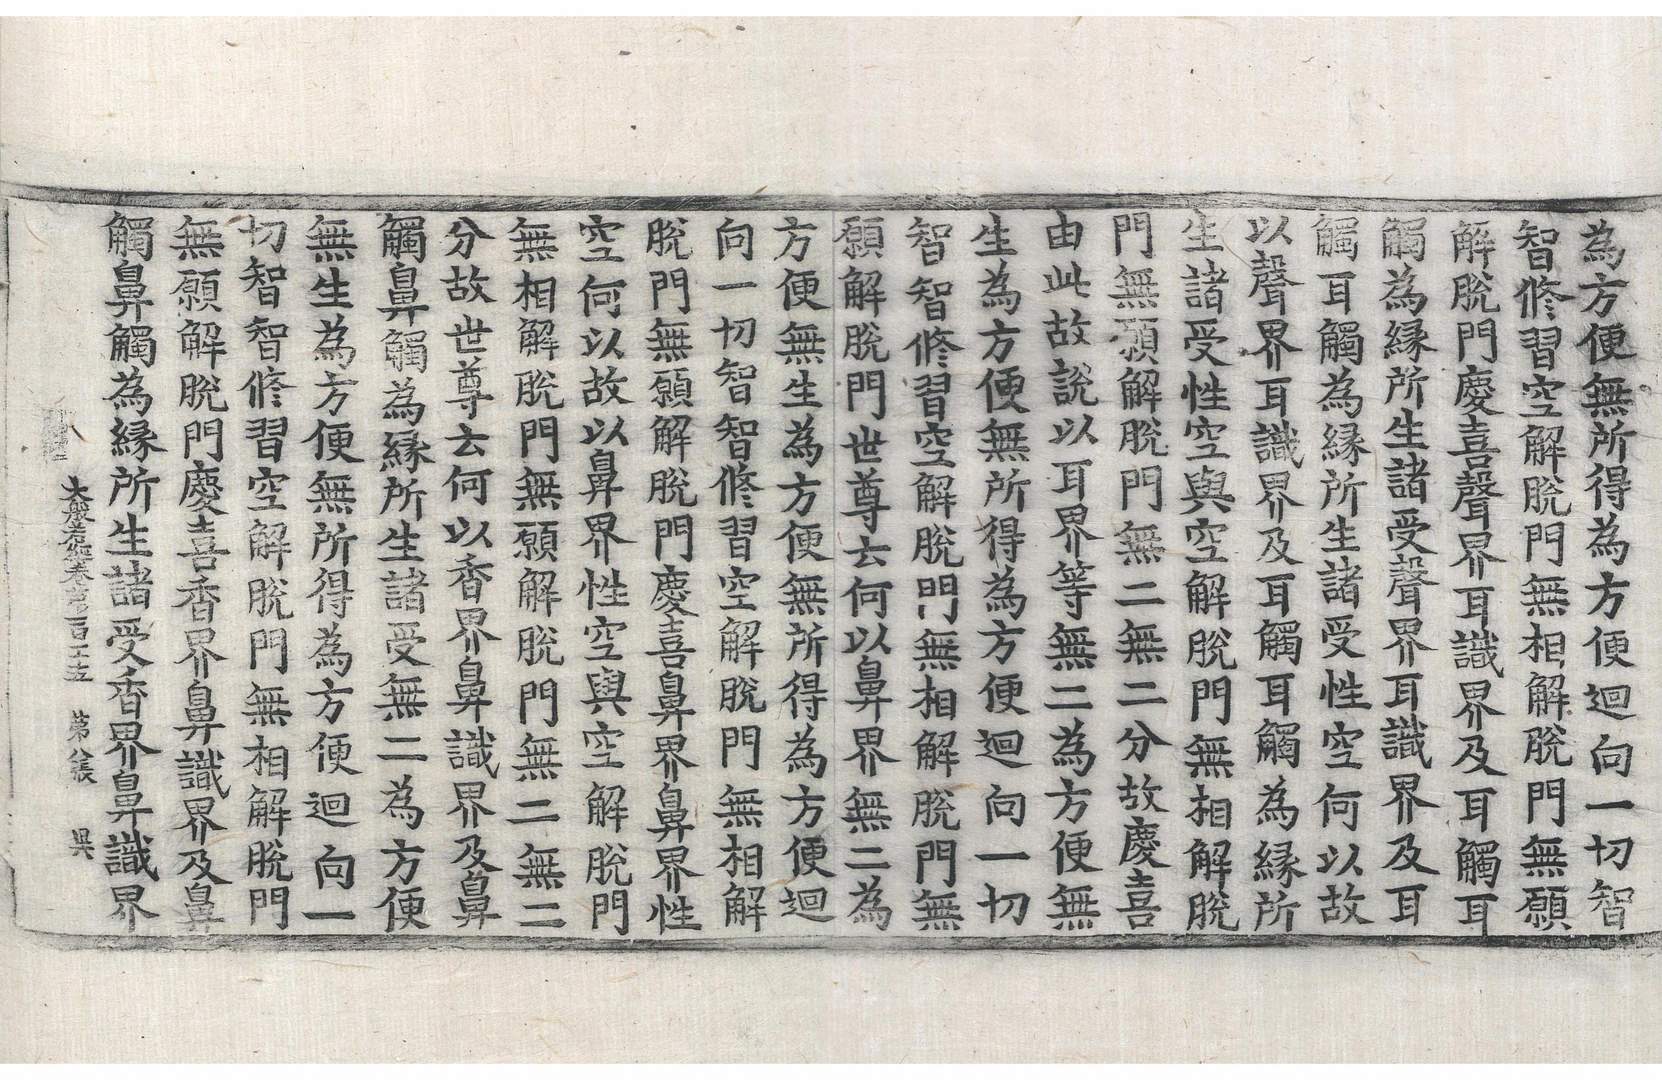 為方便無所得為方便迴向一切智
智修習空解脫門無相解脫門無願
解脫門慶喜聲界耳識界及耳觸耳
觸為縁所生諸受聲界耳識界及耳
觸耳觸為縁所生諸受性空何以故
以聲界耳識界及耳觸耳觸為縁所
生諸受性空與空解脫門無相解脫
門無願解脫門無二無二分故慶喜
由此故說以耳界等無二為方便無
生為方便無所得為方便迴向一切
智智修習空解脫門無相解脫門無
願解脫門世尊云何以鼻界無二為
方便無生為方便無所得為方便迴
向一切智智修習空解脫門無相解
脫門無願解脫門慶喜鼻界鼻界性
空何以故以鼻界性空與空解脫門
無相解脫門無願解脫門無二無二
分故世尊云何以香界鼻識界及鼻
觸鼻觸為縁所生諸受無二為方便
無生為方便無所得為方便迴向一
切智智修習空解脫門無相解脫門
無願解脫門慶喜香界鼻識界及鼻
觸鼻觸為縁所生諸受香界鼻識界
大般若經卷第一百二十五 第八張 昃